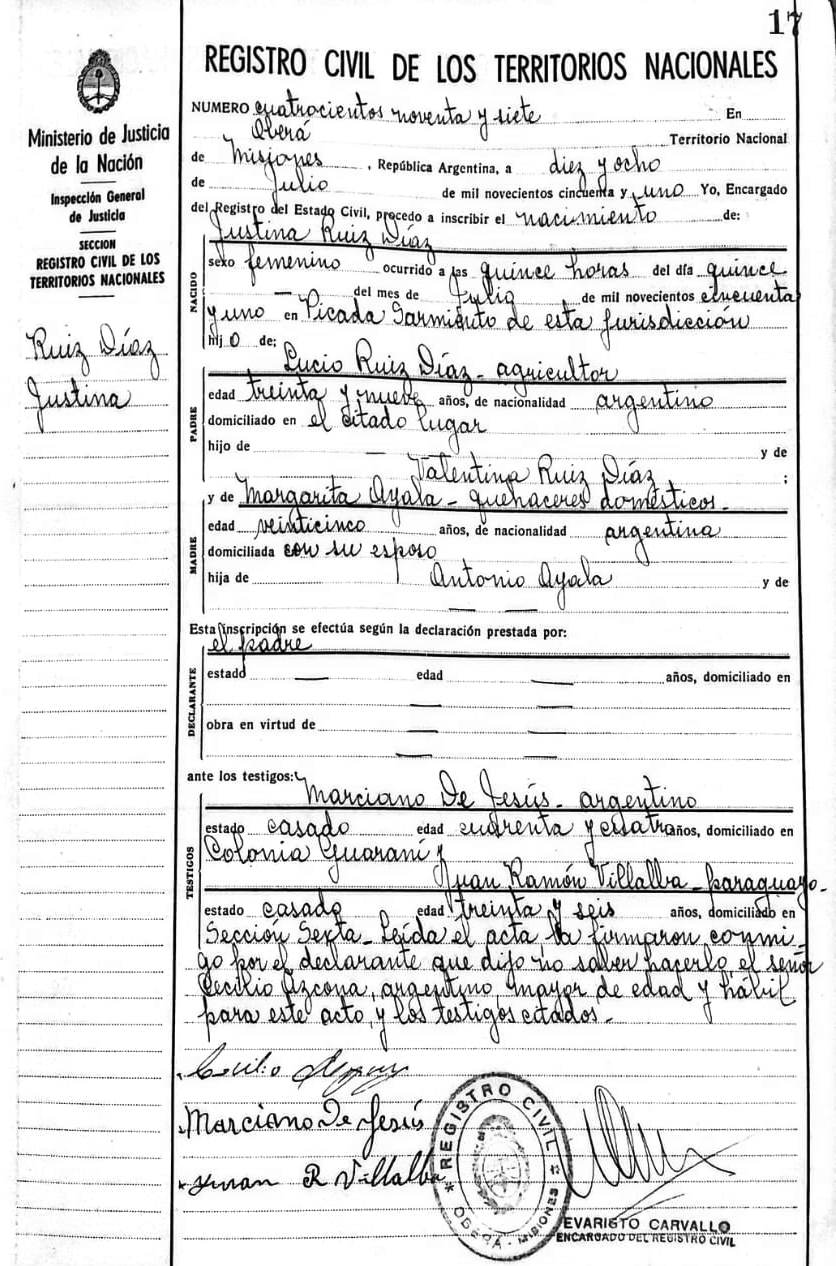 17
REGISTRO CIVIL DE LOS TERRITORIOS NACIONALES
Ministerio de Justicia
de la Nación
Inspección General
de Justicia
SECCION
REGISTRO CIVIL DE LOS
TERRITORIOS NACIONALES
Ruiz Díaz
Justina
NUMERO cuatrocientos noventa y siete En
Oberá Territorio Nacional
de Misiones, República Argentina, a diez y ocho
de Julio de mil novecientos cincuenta y uno Yo, Encargado
del Registro del Estado Civil, procedo a inscribir el nacimiento de:
Justina Ruiz Díaz
NACIDO
sexo femenino ocurrido a las quince horas del día quince
— del mes de Julio de mil novecientos cincuenta
y uno en Picada Sarmiento de esta jurisdicción
hijo de:
Lucio Ruiz Díaz - agricultor
PADRE
edad treinta y nueve años, de nacionalidad argentino
domiciliado en el citado lugar
hijo de — y de
Valentina Ruiz Díaz ;
y de Margarita Ayala - quehaceres domésticos.
MADRE
edad veinticinco años, de nacionalidad argentina
domiciliada con su esposo
hija de Antonio Ayala y de
— —
Esta inscripción se efectúa según la declaración prestada por:
el padre
DECLARANTE
estado — edad — años, domiciliado en
— —
obra en virtud de — —
— —
ante los testigos:
Marciano De Jesús - argentino
TESTIGOS
estado casado edad cuarenta y cuatro años, domiciliado en
Colonia Guaraní y
Juan Ramón Villalba - paraguayo -
estado casado edad treinta y seis años, domiciliado en
Sección Sexta - Leída el acta la firmaron conmi-
go por el declarante que dijo no saber hacerlo, el señor
Cecilio Azcona, argentino, mayor de edad y hábil
para este acto, y los testigos citados. -
Cecilio
Marciano De Jesús
Juan R Villalba
REGISTRO CIVIL
OBERÁ - MISIONES
EVARISTO CARVALLO
ENCARGADO DEL REGISTRO CIVIL